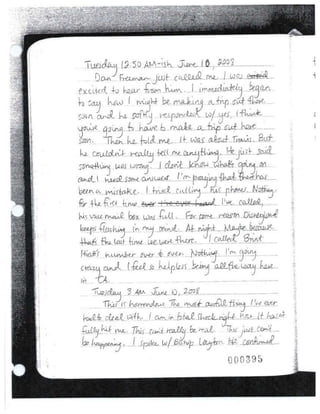 Tuesday 12:50 AM-ish June 10, 2008
Dan Freeman just called me. I was
excited to hear from him. I immediately began
to say how I might be making a trip out there
soon and he softly responded w/ yes, I think
you're going to have to make a trip out here
soon. Then he told me. It was about Travis. But
he couldn't really tell me anything. He just said
something was wrong. I don't know what's going on
and I need some answers. I'm praying that there has
been a mistake. I tried calling his phone. Nothing.
for the first time ever I've called,
his voice mail box was full. For some reason Disneyland
keeps flashing in my mind. At night. Maybe because
that's the last time we were there. I called
number over & over. Nothing. I'm going
crazy and I feel so helpless being all the way here
in CA.
Tuesday 3 AM June 10, 2008
This is horrendous. The most awful thing I've ever
had to deal with. I am in total shock right now. It hasn't
fully hit me. This can't really be real. This just can't
be happening. I spoke w/ Bishop Layton. He confirmed
000395